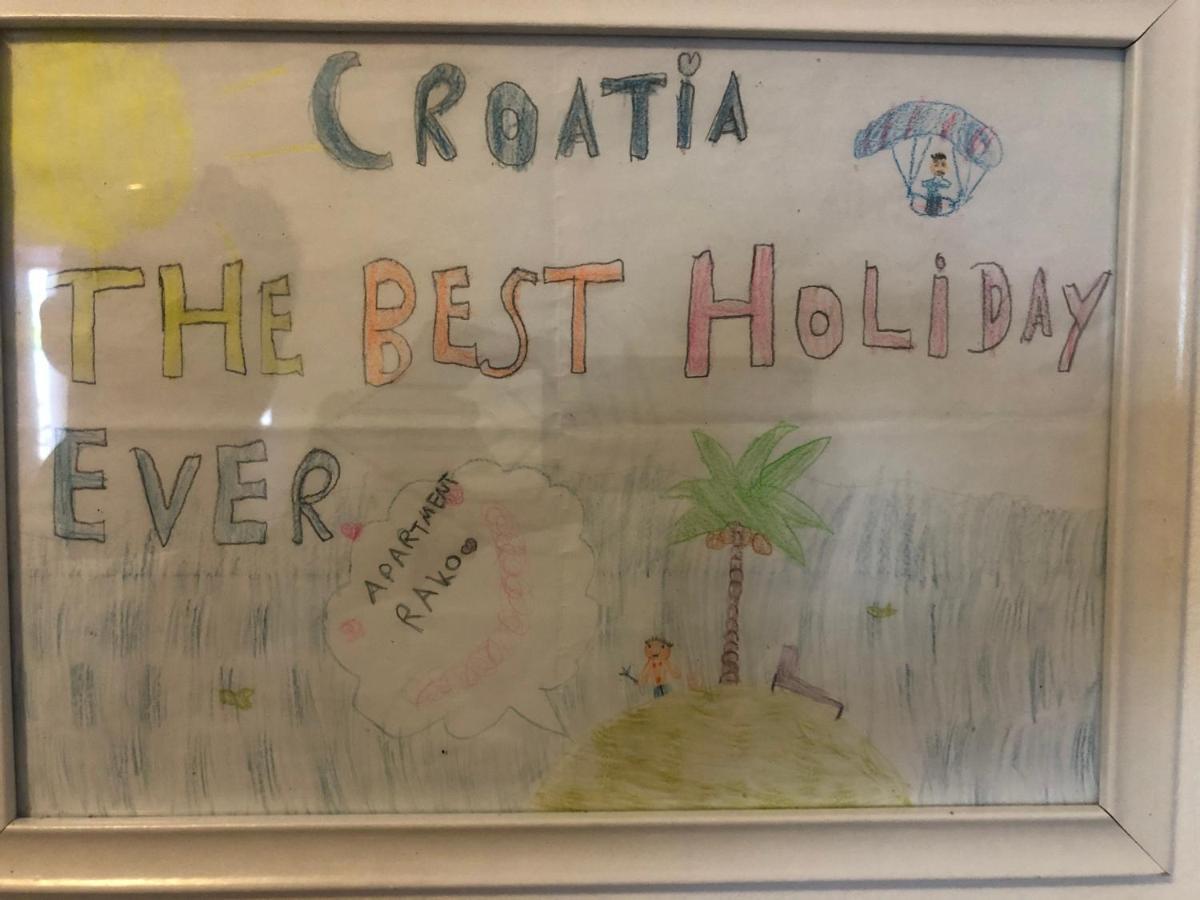 CROATiA
THE BEST HOLiDAY
EVER
APARTMENT
RAKO